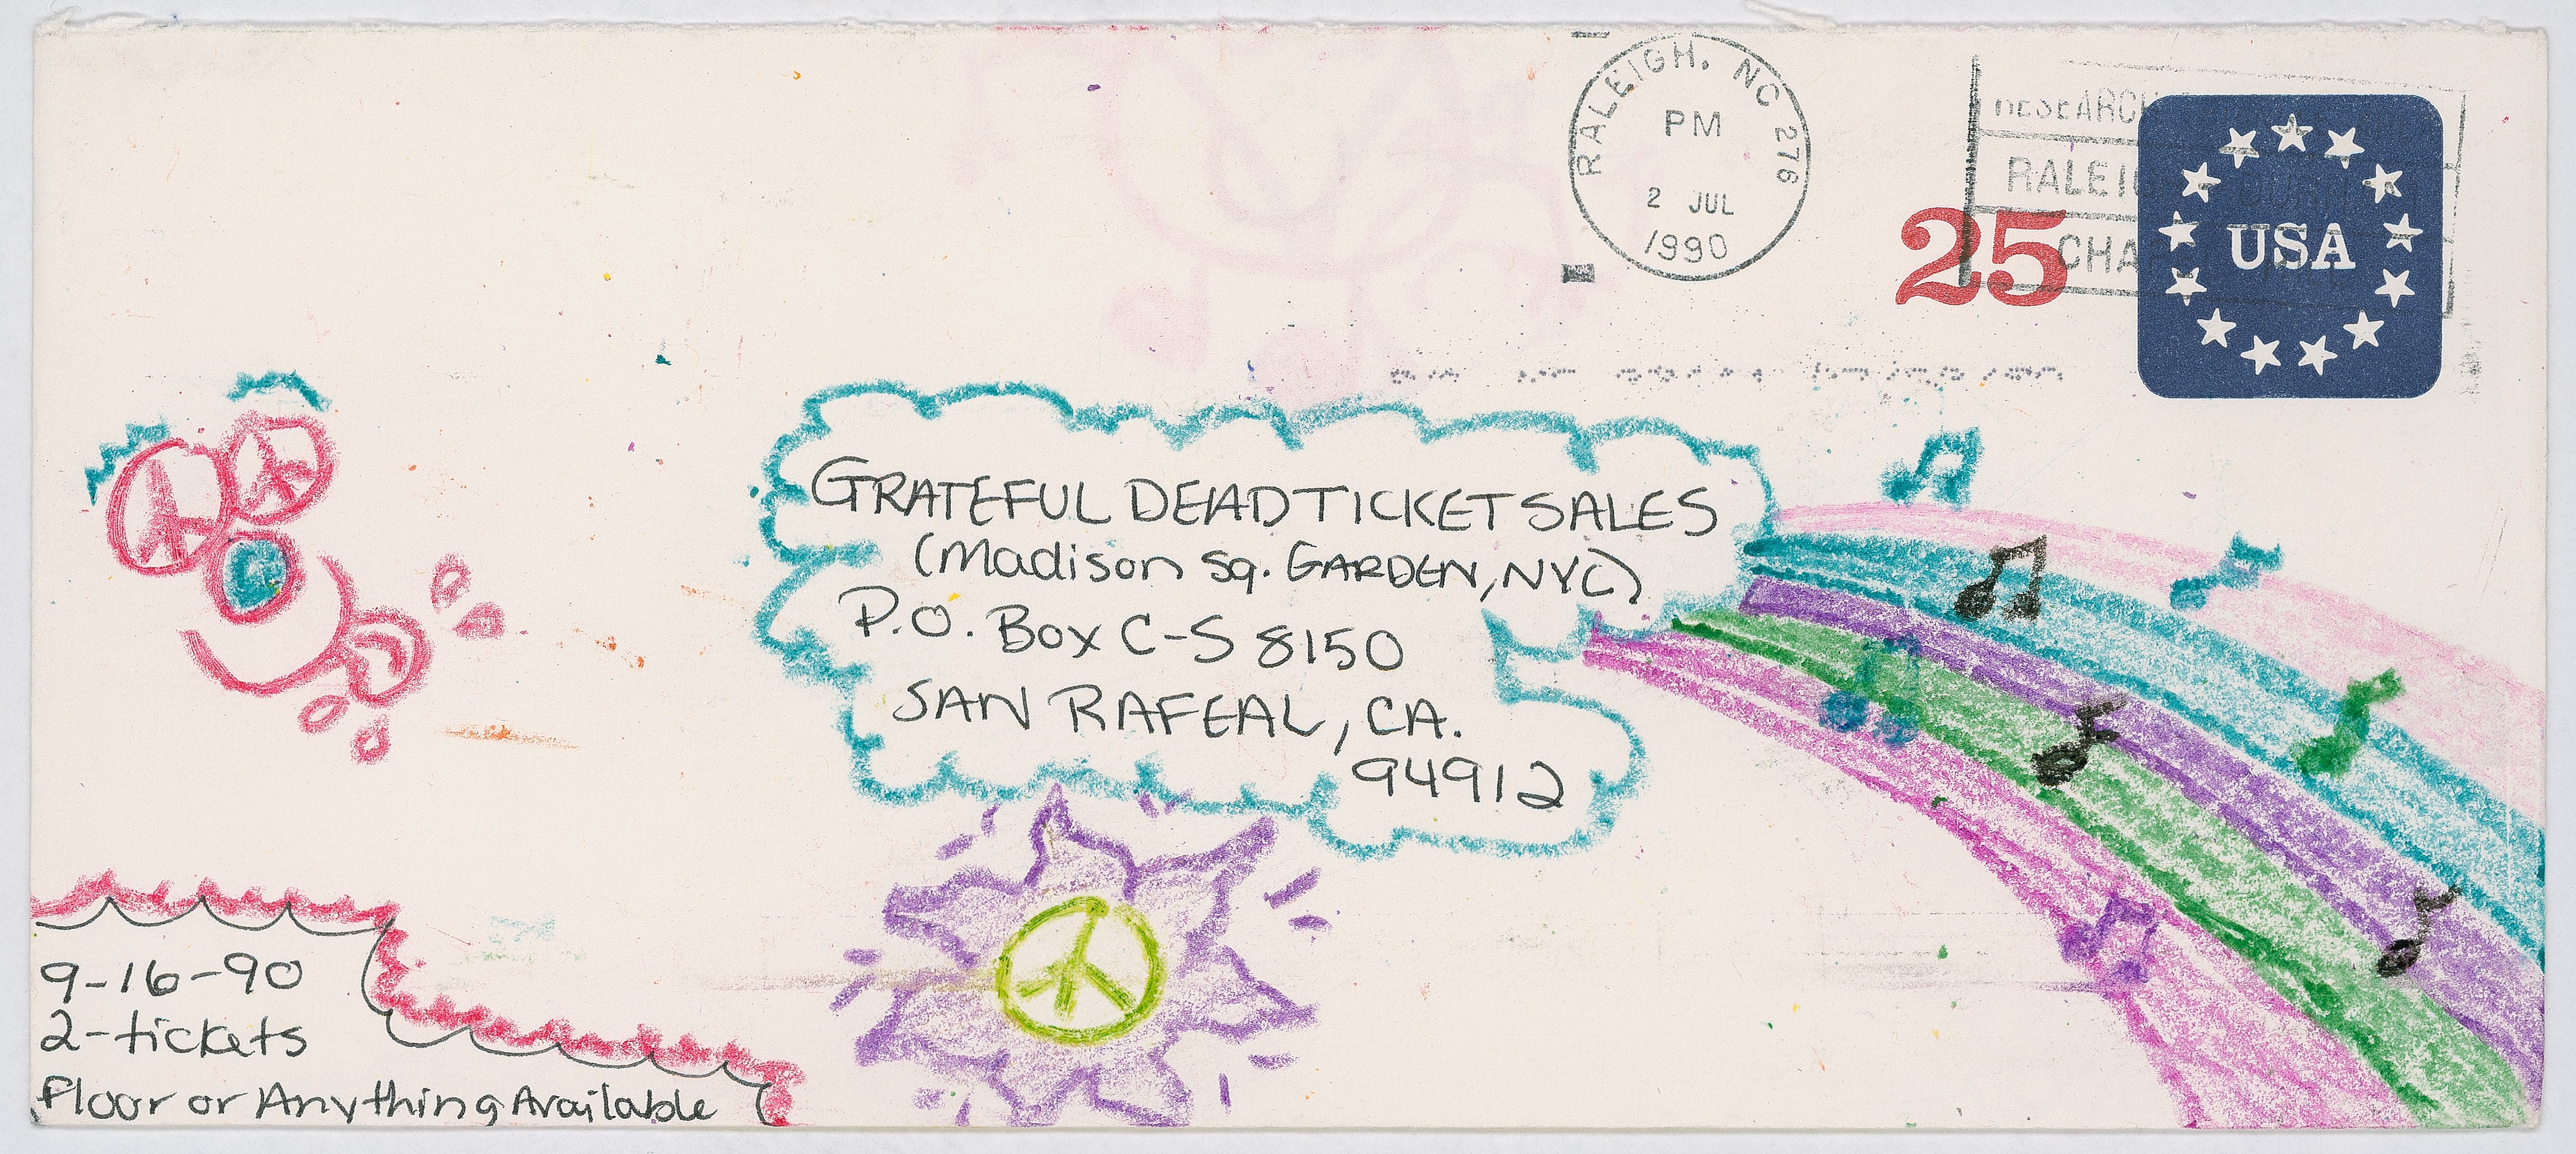 RALEIGH, NC 276
PM
2 JUL
1990
RALEIG
CHA
25
USA
GRATEFUL DEAD TICKET SALES
(Madison Sq. GARDEN, NYC)
P.O. Box C-S 8150
SAN RAFEAL, CA.
94912
9-16-90
2-tickets
Floor or Anything Available